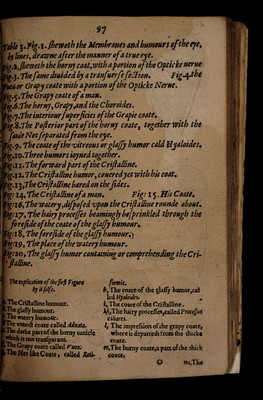 97
Table 3. Fig. 1. sheweth the Membranes and humours of the eye,
by lines, drawne after the manner of a true eye.
Fig. 2. sheweth the horny coat, with a portion of the Opticke nerue
Fig. 3. The same diuided by a transuerse section. Fig. 4. the
Vuea or Grapy coate with a portion of the Opticke Nerue.
Fig. 5. The Grapy coate of a man.
Fig. 6. The horny, Grapy, and the Choroides.
Fig. 7. The interiour superficies of the Grapie coate.
Fig. 8. The Posterior part of the horny coate, together with the
saide Net separated from the eye.
Fig. 9. The coate of the vitreous or glassy humor cald Hyaloides.
Fig. 10. Three humors ioyned together.
Fig. 11. The forward part of the Cristalline.
Fig. 12. The Cristalline humor, couered yet with his coat.
Fig. 13, The Cristalline bared on the sides.
Fig: 14, The Cristalline of a man. Fig: 15. His Coate.
Fig. 16, The watery, disposed vpon the Cristalline rounde about.
Fig: 17. The hairy processes beamingly besprinkled through the
foreside of the coate of the glassy humour.
Fig: 18, The foreside of the glassy humour.
Fig: 19, The place of the watery humour.
Fig: 20, The glassy humor containing or comprehending the Cri-
stalline.
The explication of the first Figure
by it selfe.
a, The Cristalline humour.
b, The glassy humour.
c, The watery humour.
d, The vtmost coate called Adnata.
e, The darke part of the horny tunicle
which is not transparant.
f, The Grapy coate called Vuea.
g, The Net like Coate, called Reti-
formis.
h, The coate of the glassy humor, cal
led Hyaloides.
i, The coate of the Cristalline.
k, The hairy processes, called Processus
ciliares.
l, The impression of the grapy coate,
where it departeth from the thicke
coate.
m, The horny coate, a part of the thick
coate.
O
nn, The